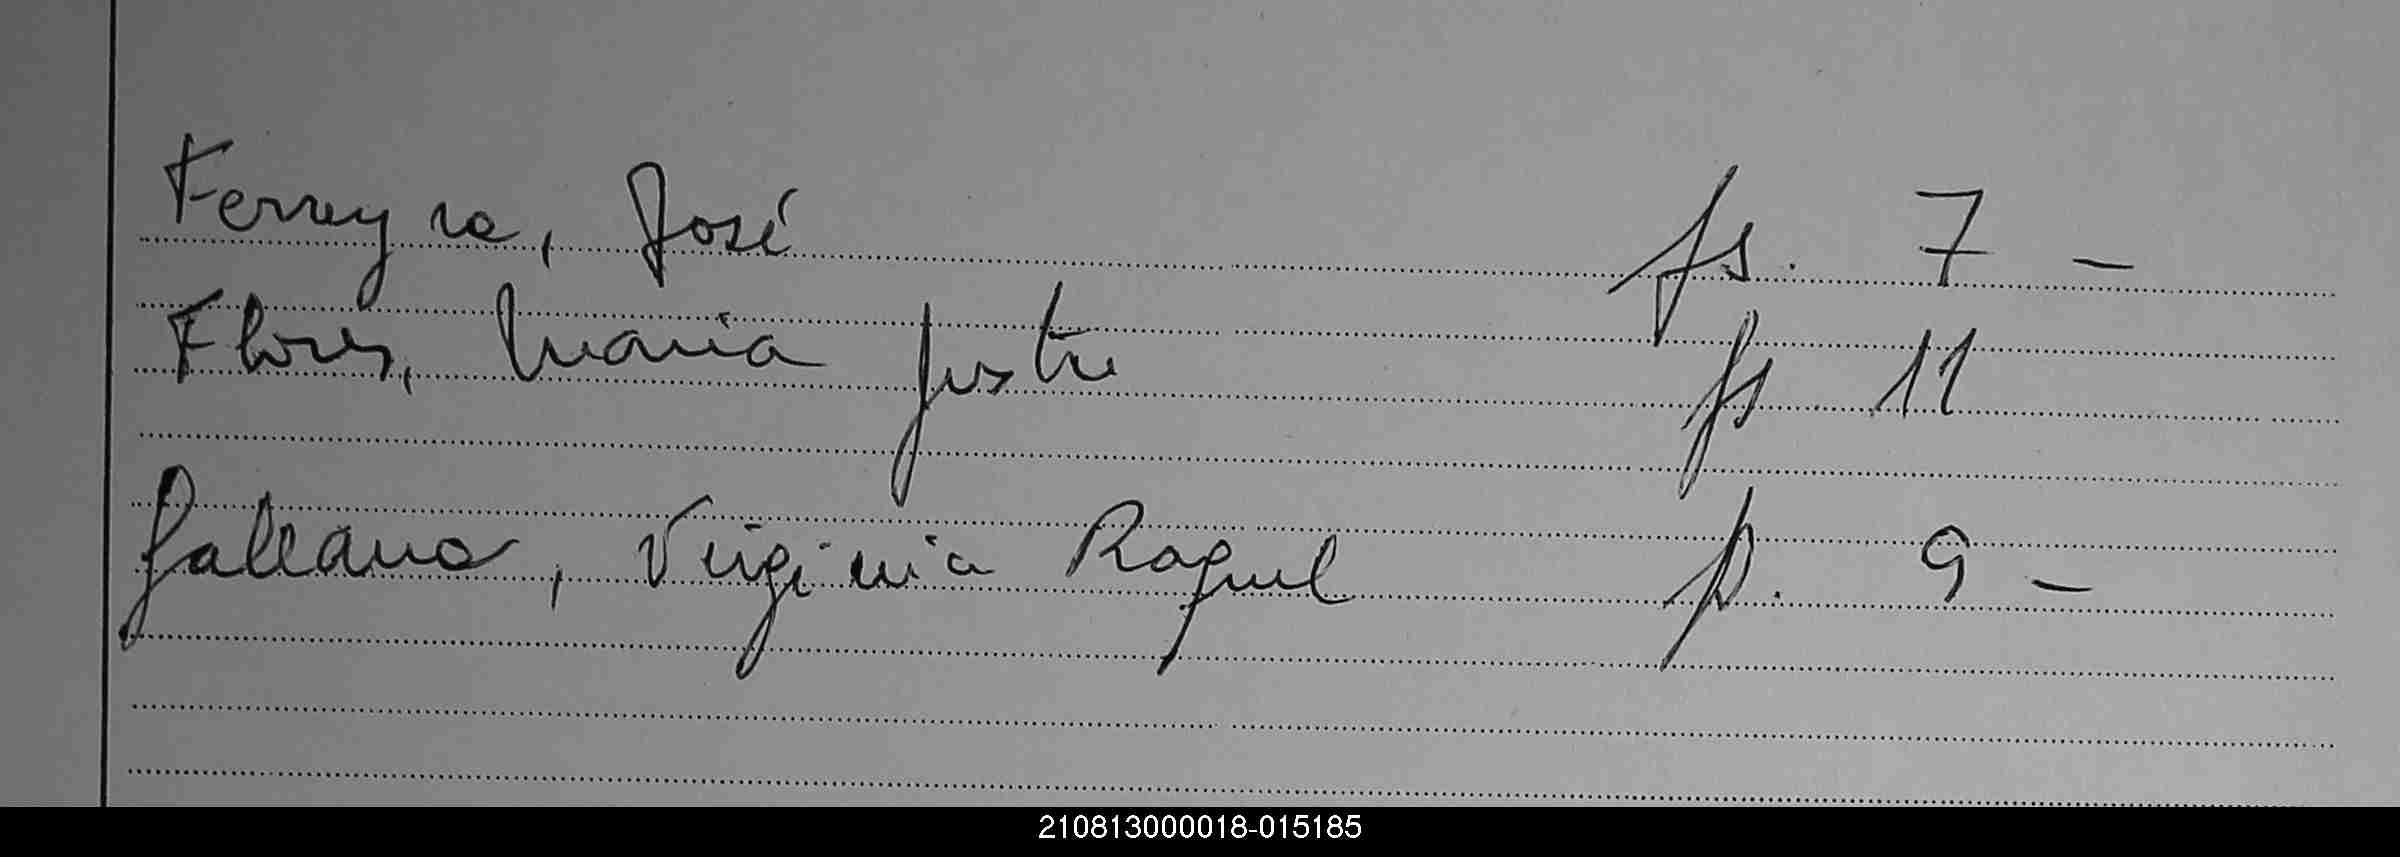 Ferreyra, José fs. 7 -
Flores, Maria Justa fs 11
Galeano, Virginia Raquel p. 9 -
210813000018-015185